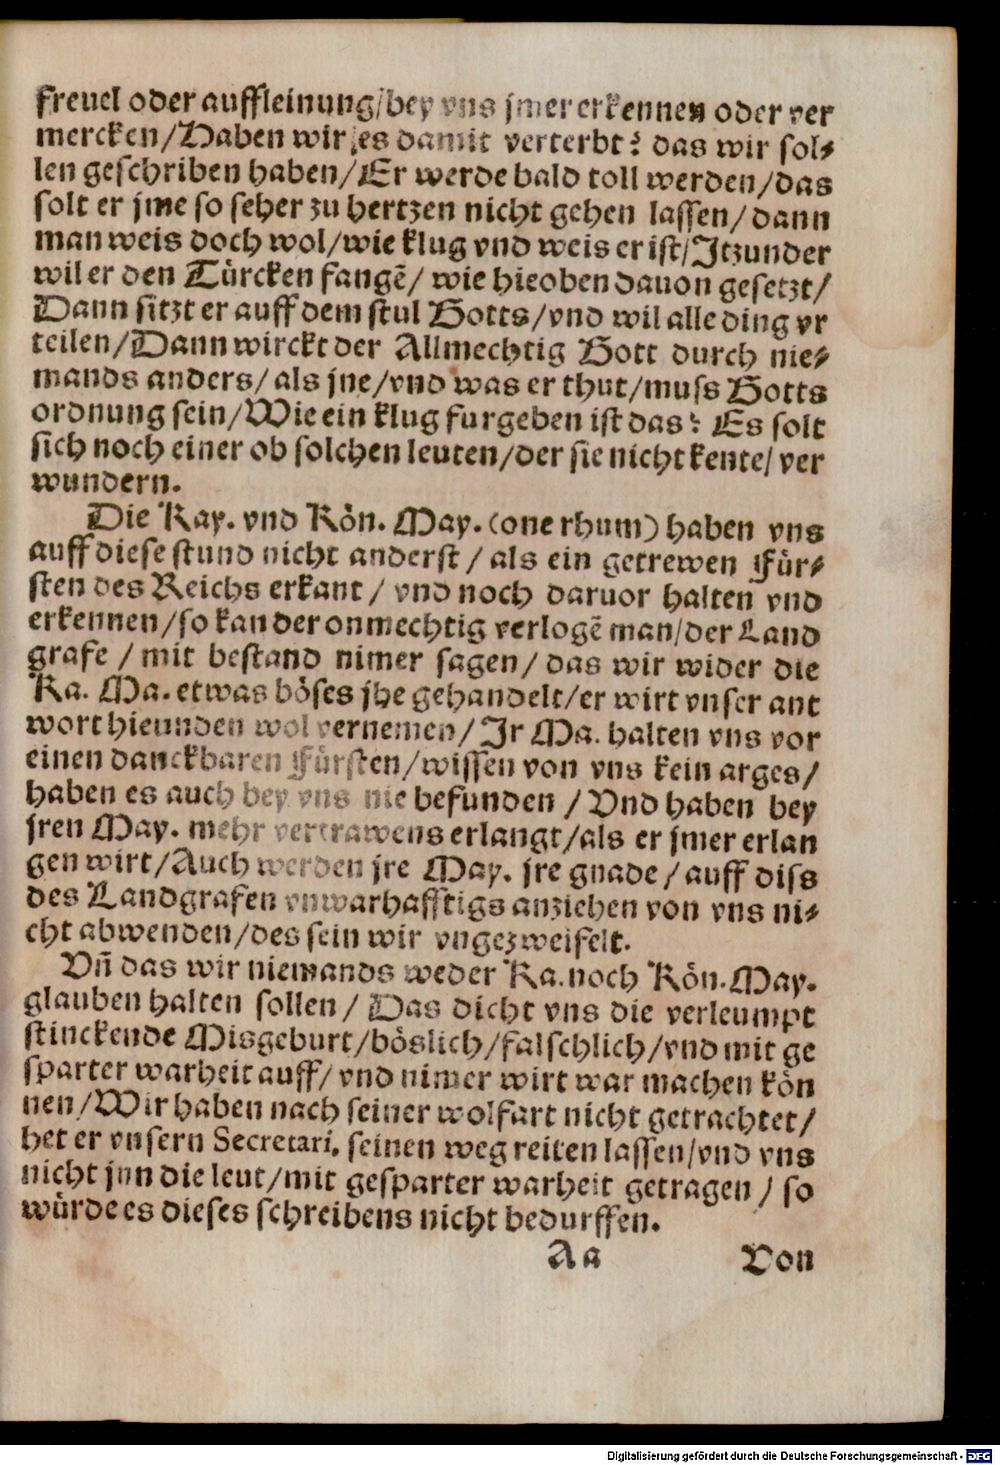 freuel oder auffleinung/bey vns jmer erkennen oder ver
mercken/Haben wir es damit verterbt? das wir sol⸗
len geschriben haben/Er werde bald toll werden/das
solt er jme so seher zu hertzen nicht gehen lassen/dann
man weis doch wol/wie klug vnd weis er ist/Itzunder
wil er den Türcken fangẽ/ wie hieoben dauon gesetzt/
Dann sitzt er auff dem stul Gotts/vnd wil alle ding vr
teilen/Dann wirckt der Allmechtig Gott durch nie⸗
mands anders/als jne/vnd was er thut/muss Gotts
ordnung sein/Wie ein klug furgeben ist das? Es solt
sich noch einer ob solchen leuten/der sie nicht kente/ver
wundern.
Die Kay. vnd Kön. May. (one rhum) haben vns
auff diese stund nicht anderst/als ein getrewen Für⸗
sten des Reichs erkant/vnd noch daruor halten vnd
erkennen/so kan der onmechtig verlogẽ man/der Land
grafe/mit bestand nimer sagen/das wir wider die
Ka. Ma. etwas böses jhe gehandelt/er wirt vnser ant
wort hieunden wol vernemen/Ir Ma. halten vns vor
einen danckbaren Fürsten/wissen von vns kein arges/
haben es auch bey vns nie befunden/Vnd haben bey
jren May. mehr vertrawens erlangt/als er jmer erlan
gen wirt/Auch werden jre May. jre gnade/auff diss
des Landgrafen vnwarhafftigs anziehen von vns ni⸗
cht abwenden/des sein wir vngezweifelt.
Vñ das wir niemands weder Ka. noch Kön. May.
glauben halten sollen/Das dicht vns die verleumpt
stinckende Misgeburt/böslich/falschlich/vnd mit ge
sparter warheit auff/vnd nimer wirt war machen kön
nen/Wir haben nach seiner wolfart nicht getrachtet/
het er vnsern Secretari, seinen weg reiten lassen/vnd vns
nicht jnn die leut/mit gesparter warheit getragen/so
würde es dieses schreibens nicht bedurffen.
Aa Von
Digitalisierung gefördert durch die Deutsche Forschungsgemeinschaft - DFG